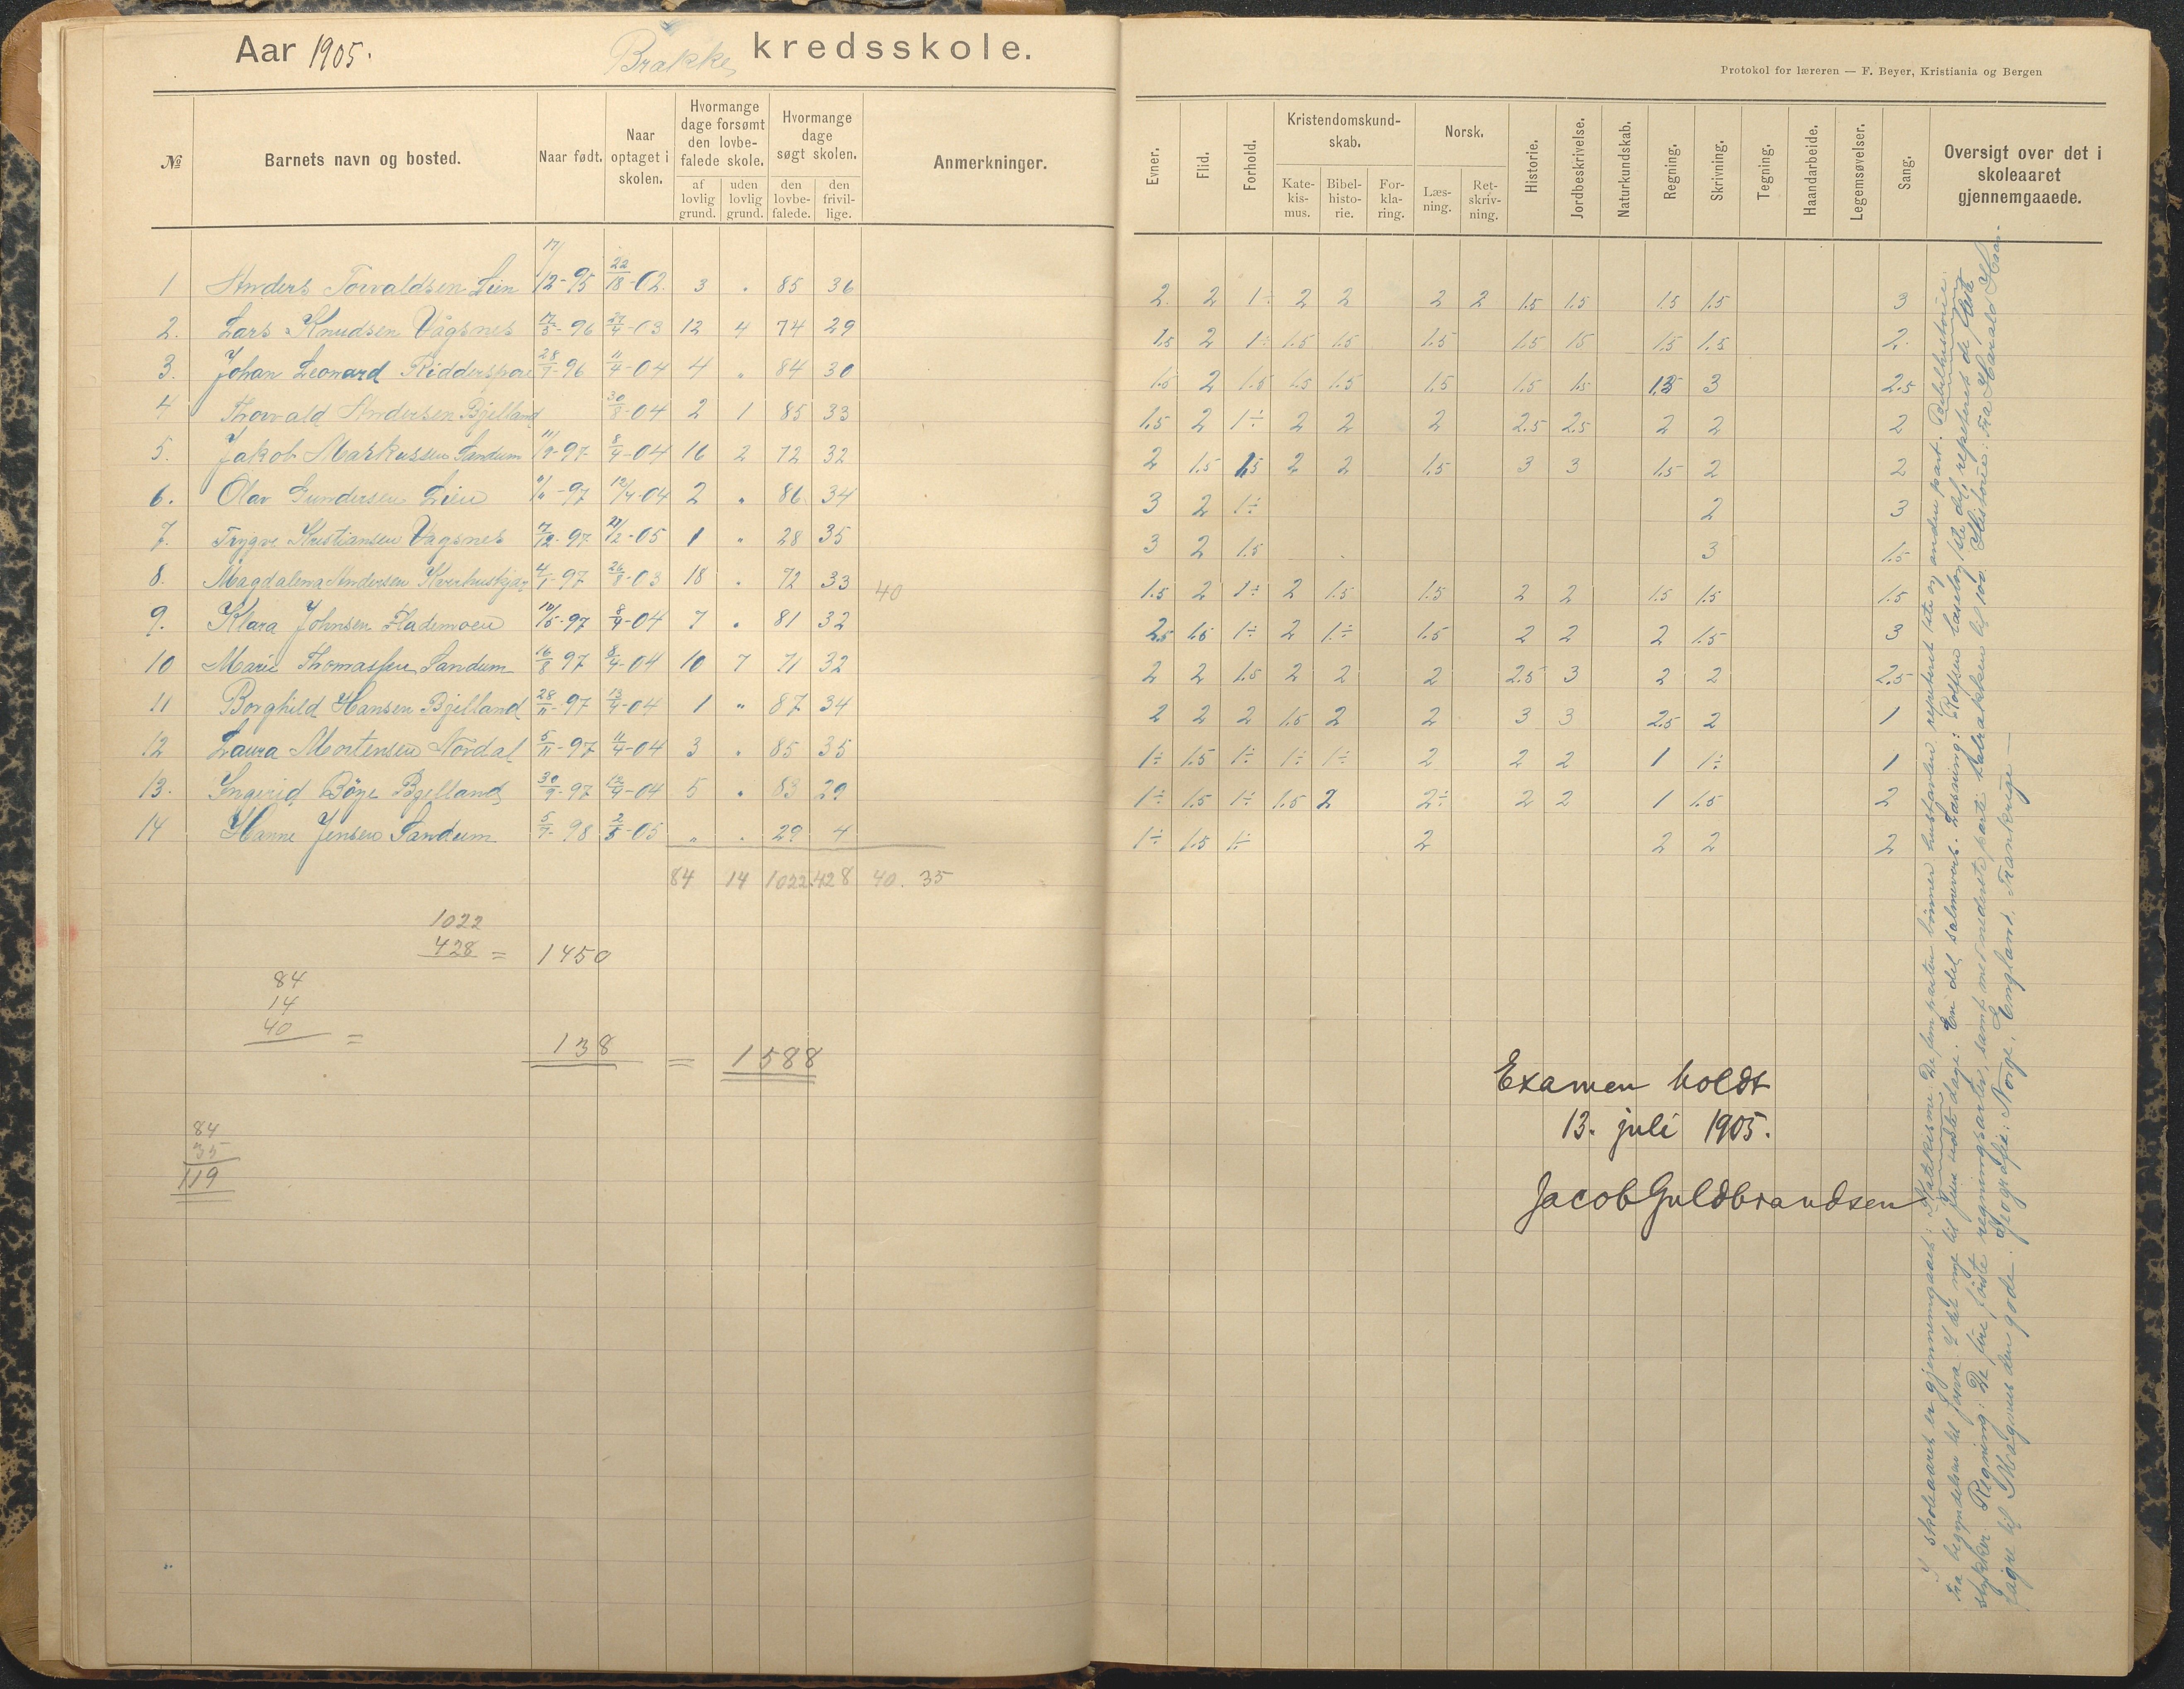 Aar 1905. Brække kredsskole.
Protokol for læreren — F. Beyer, Kristiania og Bergen
№ Barnets navn og bosted. Naar født. Naar optaget i skolen. Hvormange dage forsømt den lovbefalede skole. af lovlig grund. uden lovlig grund. Hvormange dage søgt skolen. den lovbefalede. den frivillige. Anmerkninger.
Evner. Flid. Forhold. Kristendomskundskab. Katekismus. Bibelhistorie. Forklaring. Norsk. Læsning. Retskrivning. Historie. Jordbeskrivelse. Naturkundskab. Regning. Skrivning. Tegning. Haandarbeide. Legemsøvelser. Sang. Oversigt over det i skoleaaret gjennemgaaede.
1 Anders Torvaldsen Lien 17/12-95 22/18-02. 3 . 85 36 2. 2 1÷ 2 2 2 2 1.5 1.5 1.5 1.5 3
2. Lars Knudsen Vågsnes 17/5-96 29/4-03 12 4 74 29 1.5 2 1÷ 1.5 1.5 1.5 1.5 15 1.5 1.5 2.
3. Johan Leonard Ridderspore 28/7-96 11/4-04 4 . 84 30 1.5 2 1.5 1.5 1.5 1.5 1.5 1.5 1.5 3 2.5
4 Thorvald Andersen Bjelland 30/8-04 2 1 85 33 1.5 2 1÷ 2 2 2 2.5 2.5 2 2 2
5. Jakob Markussen Sandum 11/9-97 8/4-04 16 2 72 32 2 1.5 1.5 2 2 1.5 3 3 1.5 2 2
6. Olav Gundersen Lien -97 12/4-04 2 " 86 34 3 2 1÷ 2 3
7. Trygve Kristiansen Vagsnes 17/12-97 21/2-05 1 " 28 35 3 2 1.5 3 1.5
8. Magdalena Andersen Kverhuskjær 4/1-97 26/8-03 18 . 72 33 40 1.5 2 1÷ 2 1.5 1.5 2 2 1.5 1.5 1.5
9. Klara Johnsen Flademoen 10/5-97 8/4-04 7 . 81 32 2.5 1.5 1÷ 2 1÷ 1.5 2 2 2 1.5 3
10 Marie Thomassen Sandum 16/8 97 8/4-04 10 7 71 32 2 2 1.5 2 2 2 2.5 3 2 2 2.5
11 Borghild Hansen Bjelland 28/11-97 13/4-04 1 " 87 34 2 2 2 1.5 2 2 3 3 2.5 2 1
12 Laura Mortensen Nordal 5/11-97 11/4-04 3 . 85 35 1÷ 1.5 1÷ 1÷ 1÷ 2 2 2 1 1÷ 1
13. Ingerid Böye Bjelland 30/9-97 12/4-04 5 . 83 29 1÷ 1.5 1÷ 1.5 2 2÷ 2 2 1 1.5 2
14 Hanne Jensen Sandum 5/7-98 2/5-05 " . 29 4 1÷ 1.5 1÷ 2 2 2 2
84 14 1022. 428 40. 35
1022
428 = 1450
84
14
40 =
138 = 1588
84
35
119
Examen holdt
13. juli 1905.
Jacob Guldbrandsen
I skoleaaret er gjennemgaaet: Katekisme: De fem parter bönner hustavlen repeteret 1ste og anden part. Bibelhistorie:
fra begyndelsen til af det nye til Jesu sidste dage. En del salmevers. Læsning: Rolfsen læsebog 1ste del, repeteret de fleste
stykker Regning: De fire første regningsarter, samt medundret Historie: fra Harald Haar-
fagre til Magnus den gode. Geografi: Norge, England, Frankrige —